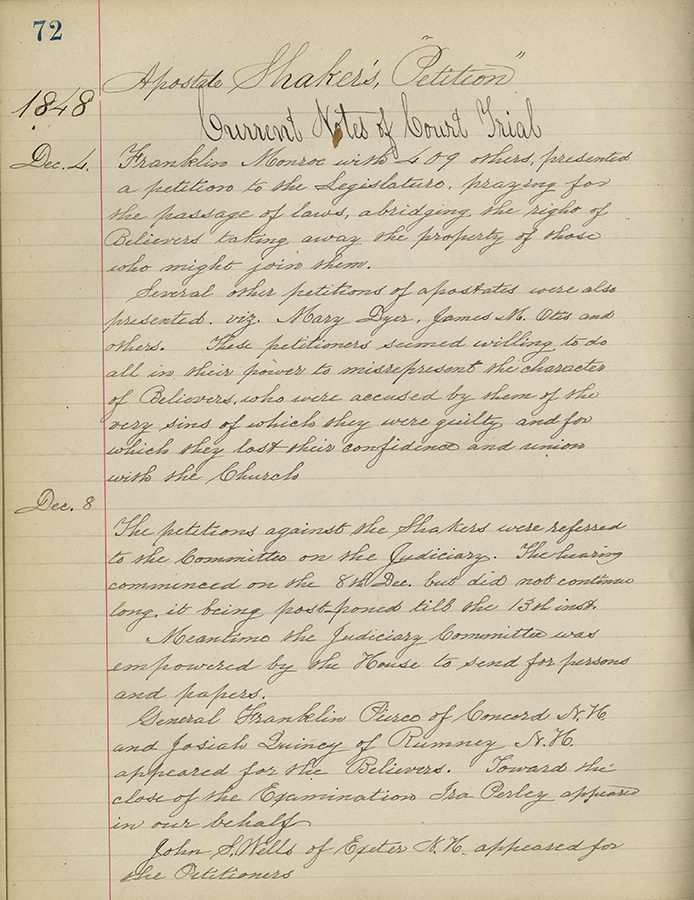 72
Apostate Shaker's, "Petition"
1848
Current Notes of Court Trial
Dec. 4. Franklin Monroe with 409 others, presented
a petition to the Legislature, praying for
the passage of laws, abridging the right of
Believers taking away the property of those
who might join them.
Several other petitions of apostates were also
presented. viz. Mary Dyer, James M. Otis and
others. These petitioners seemed willing to do
all in their power to misrepresent the character
of Believers, who were accused by them of the
very sins of which they were guilty, and for
which they lost their confidence and union
with the Church
Dec. 8
The petitions against the Shakers were referred
to the Committee on the Judiciary. The hearing
commenced on the 8th Dec. but did not continue
long, it being post-poned till the 13th inst.
Meantime the Judiciary Committee was
empowered by the House to send for persons
and papers.
General Franklin Pierce of Concord N.H.
and Josiah Quincy of Rumney N.H.
appeared for the Believers. Toward the
close of the Examination Ira Perley appeared
in our behalf
John S. Wells of Exeter N.H. appeared for
the Petitioners